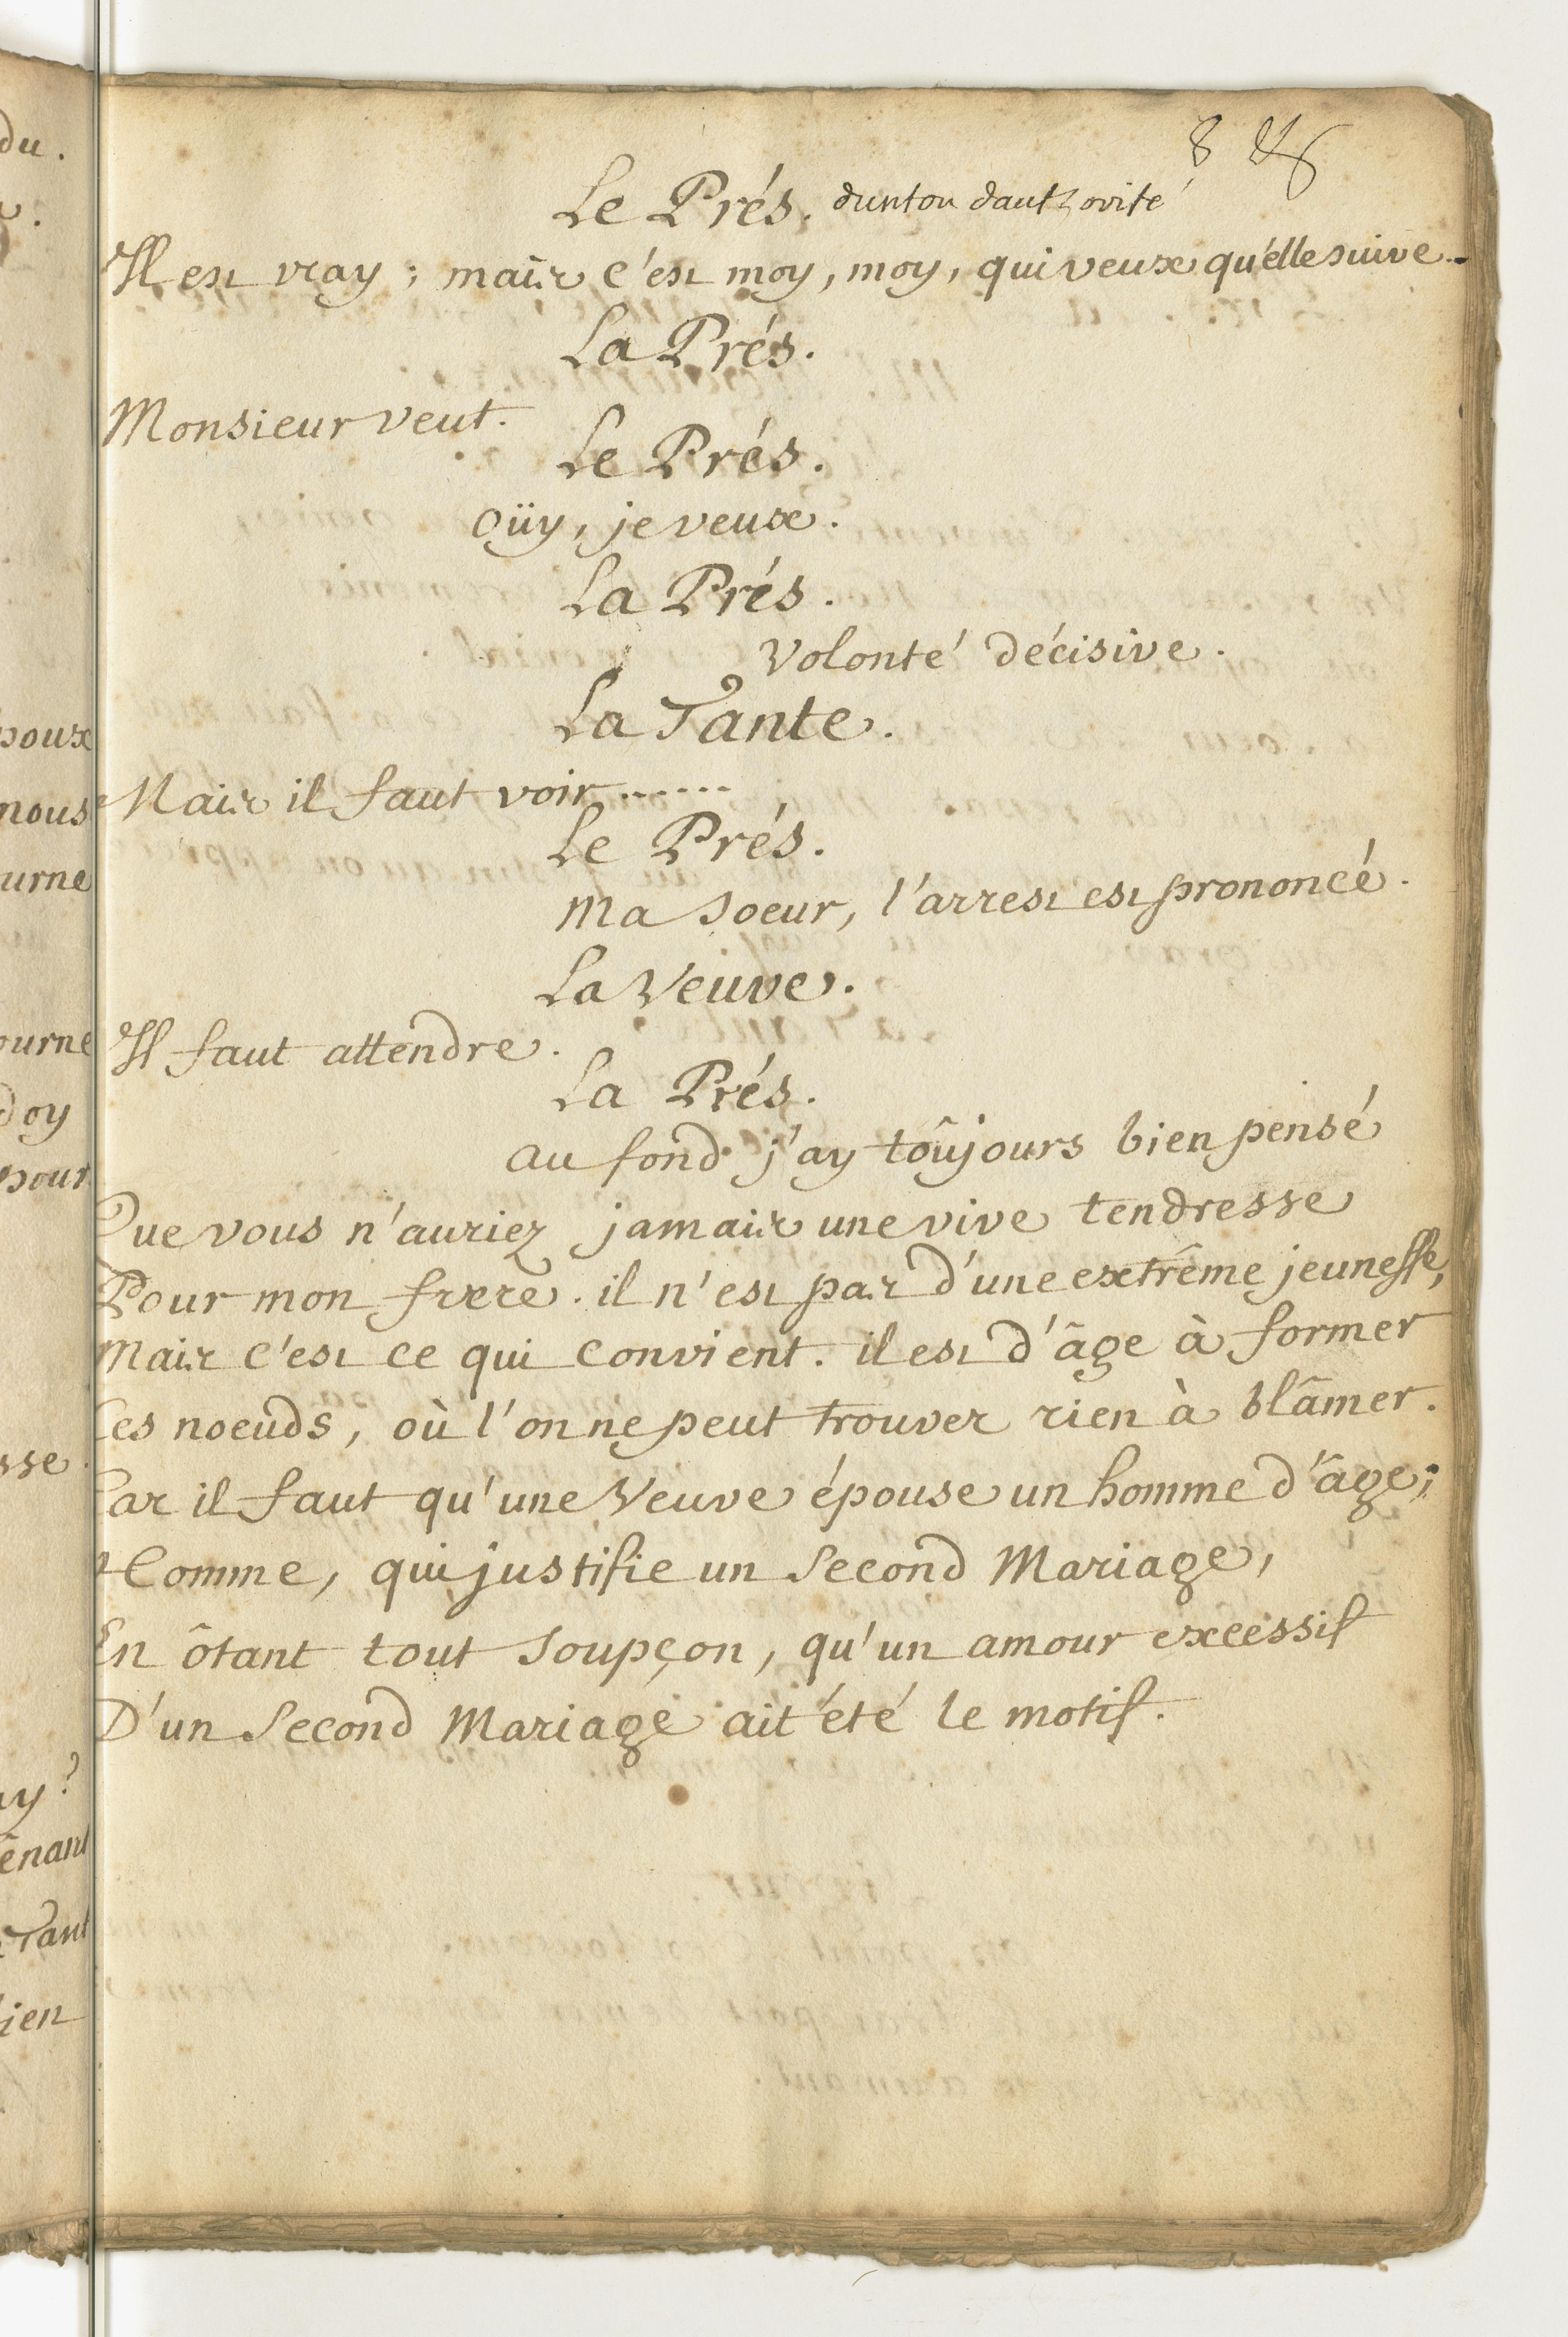 8
Le Prés. dunton dauthorité
Il est vray; mais c'est moy, moy, qui veux qu'elle suive..
La Prés.
Monsieur veut.
Le Prés.
oüy, je veux.
La Prés.
Volonté décisive.
La Tante.
Mais il faut voir......
Le Prés.
Ma soeur, l'arrest est prononcé.
La Veuve.
Il faut attendre.
La Prés.
au fond j'ay toûjours bien pensé
Que vous n'auriez jamais une vive tendresse
Pour mon frere. il n'est pas d'une extrême jeunesse,
Mais c'est ce qui convient. il est d'âge à former
Ces noeuds, où l'on ne peut trouver rien à blâmer.
Car il faut qu'une Veuve épouse un homme d'âge;
Homme, qui justifie un second Mariage,
En ôtant tout soupçon, qu'un amour excessif
D'un second Mariage ait été le motif.
du.
poux
nous
urne
ourne
doy
pour
sse.
ay?
enant
Tant
ien